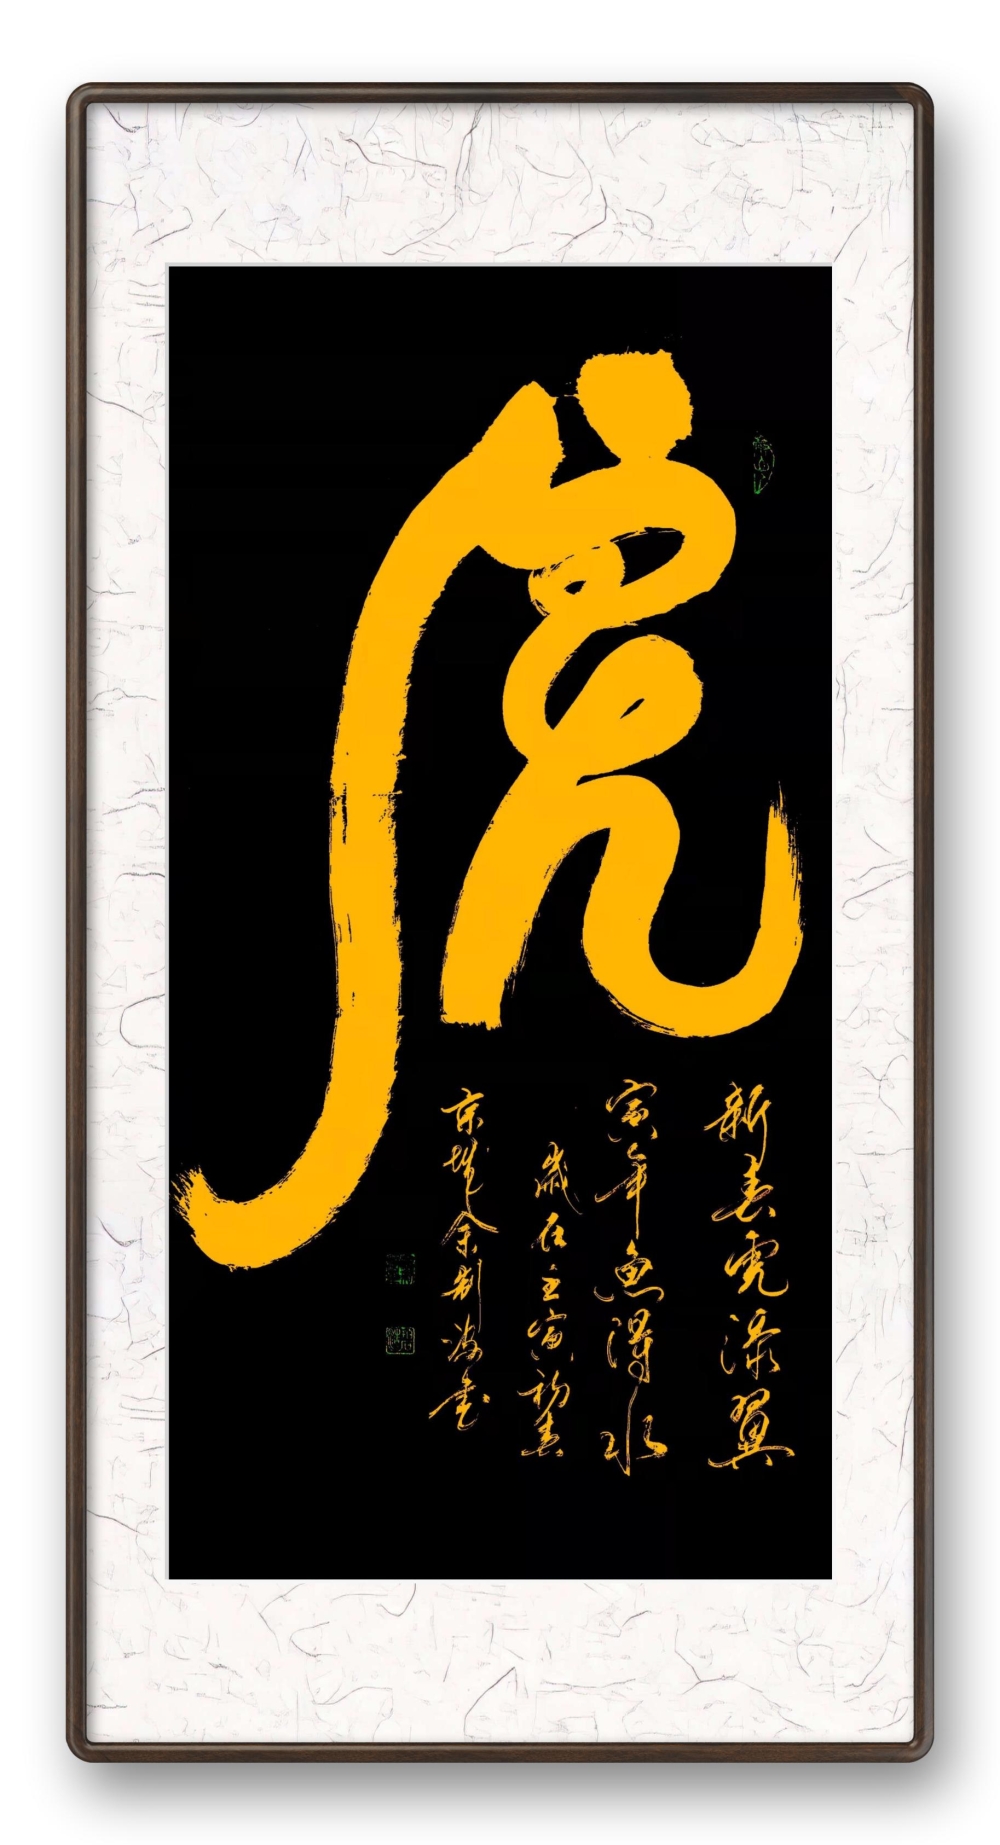 虎
新春虎添翼
寅年鱼得水
岁在壬寅初春
京城余制海书